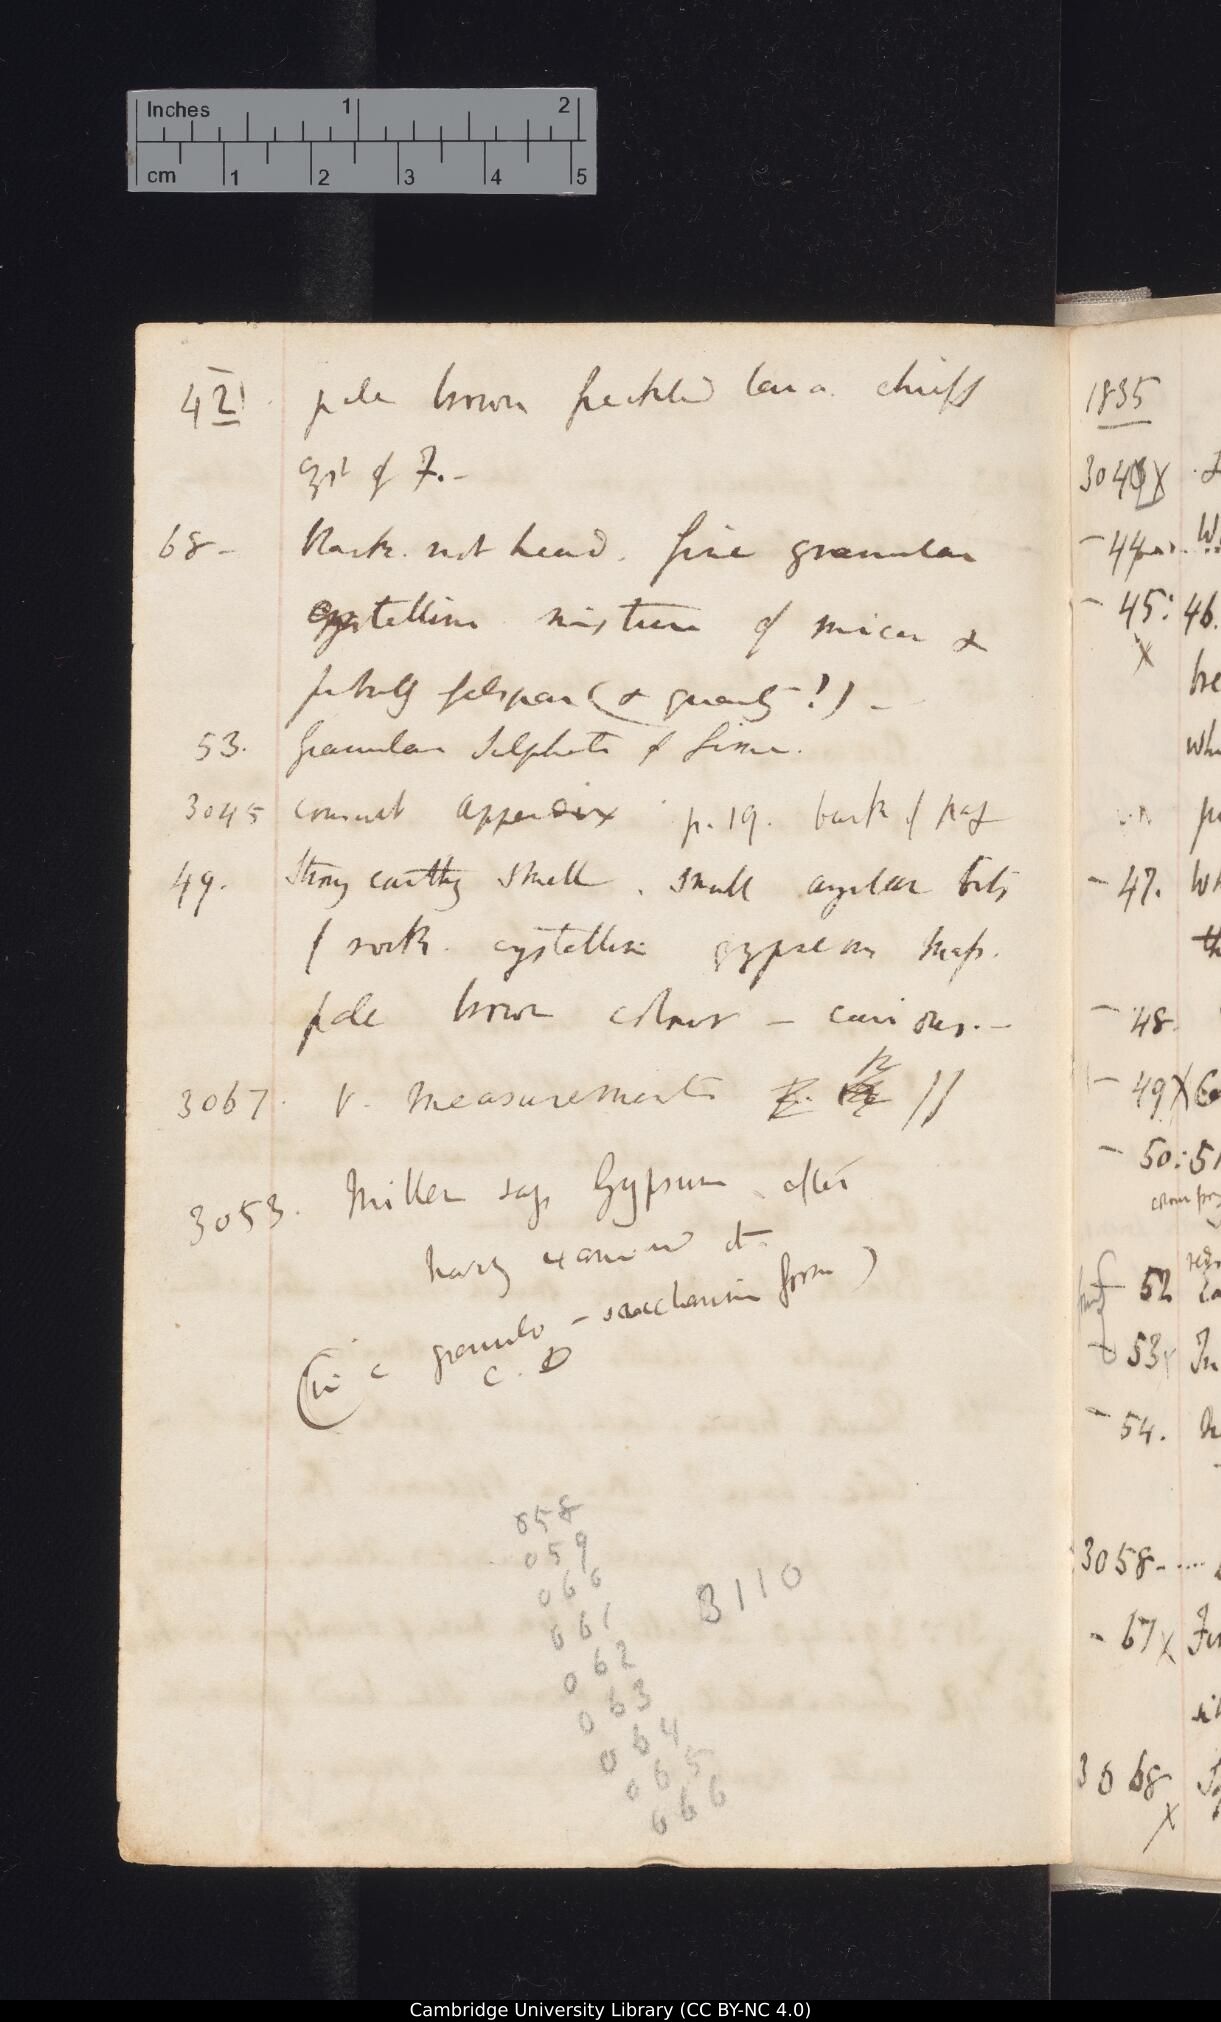 Inches 1 2
cm 1 2 3 4 5
42 pale brown freckled lava. chiefly
of 7.-
68- Black. not hard. fine granular
crystalline mixture of mica &
felspar (& quartz?) -
53. Granular Sulphate of Lime.
3045 consult appendix p. 19. back of page
49. Strong earthy smell. small angular bits
of rock. crystalline gypseous mass.
pale brown colour - curious.-
3067. V. Measurements 11
3053. Miller says Gypsum after
having examined it
(in a granulo-saccharine form)
C. D
058
059
060
061
062
063
064
065
066
3110
1835
3043 X
- 44
- 45: 46.
X
- 47.
- 48.
- 49 X
- 50: 51
- 52
- 53
- 54.
3058-....
- 67 X
3068
X
Cambridge University Library (CC BY-NC 4.0)